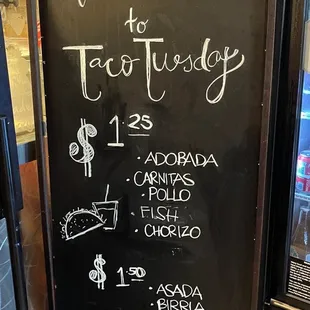 to
Taco Tuesday
$ 1.25
· ADOBADA
· CARNITAS
· POLLO
· FISH
· CHORIZO
$ 1.50
· ASADA
· BIRRIA